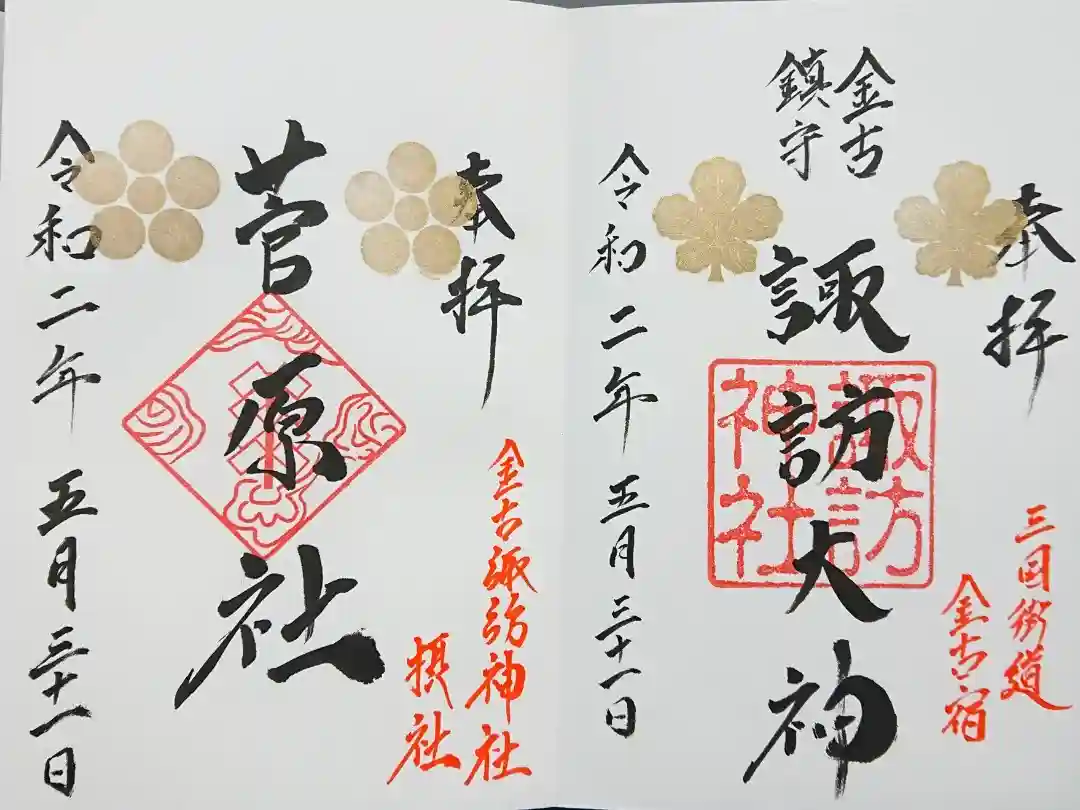 奉拝
三国街道
金古宿
金古
鎮守
諏訪大神
諏訪
神社
令和二年 五月 三十一日
奉拝
金古諏訪神社
摂社
菅原社
令和二年 五月 三十一日